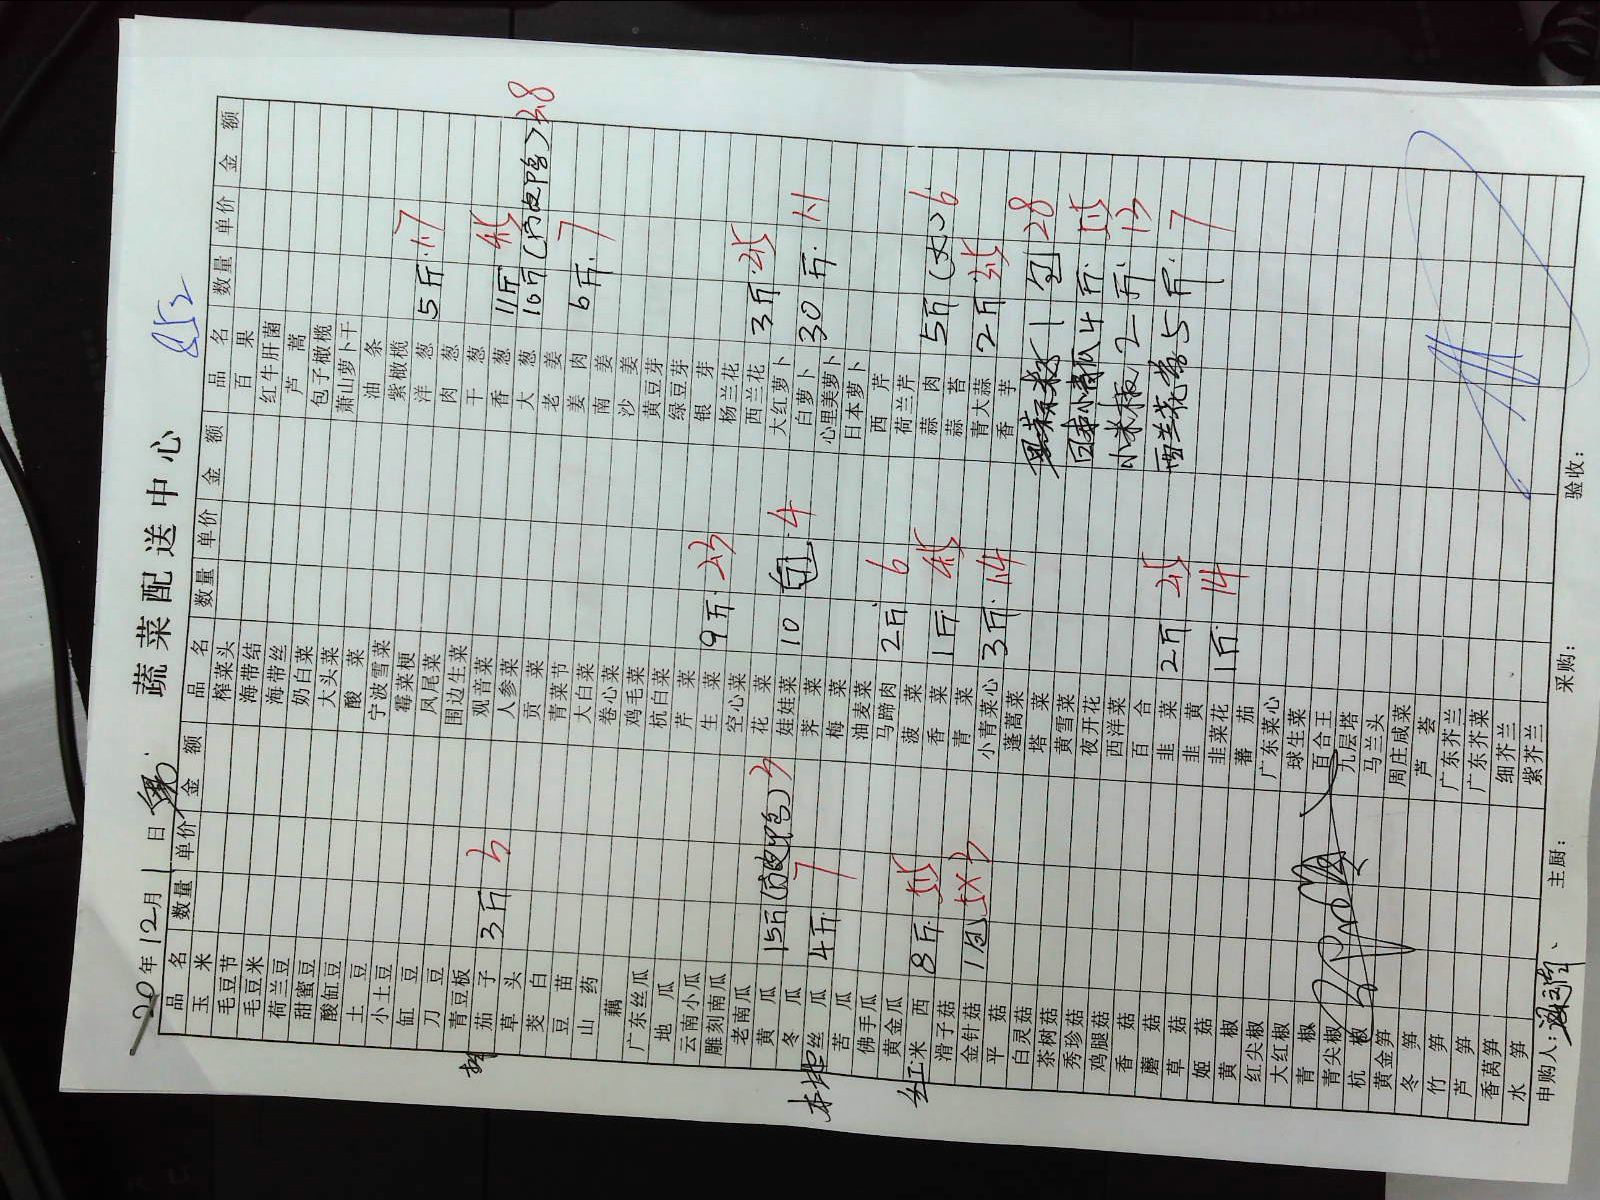 蔬菜配送中心
20 年 12 月 1 日
品名 数量 单价 金额 品名 数量 单价 金额 品名 数量 单价 金额
玉米 榨菜头 百果
毛豆节 海带结 红牛肝菌
毛豆米 海带丝 芦蒿
荷兰豆 奶白菜 包子橄榄
甜蜜豆 大头菜 萧山萝卜干
酸缸豆 酸菜 油条
土豆 宁波雪菜 紫橄榄
小土豆 霉菜梗 洋葱 5斤 1.7
缸豆 凤尾菜 肉葱
刀豆 围边生菜 干葱
青豆板 观音菜 香葱 11斤 4.5
茄子 3斤 3 人参菜 大葱 10斤(内皮鸭) 3.8
草头 贡菜 老姜
茭白 青菜节 姜肉 6斤 7
豆苗 大白菜 南姜
山药 卷心菜 沙姜
藕 鸡毛菜 黄豆芽
广东丝瓜 杭白菜 绿豆芽
地瓜 芹菜 银芽
云南小瓜 生菜 9斤 2.3 杨兰花
雕刻南瓜 空心菜 西兰花 3斤 4.5
老南瓜 花菜 大红萝卜
黄瓜 15斤 3 娃娃菜 10包 4 白萝卜 30斤 1.1
冬瓜 荠菜 心里美萝卜
本地丝瓜 4斤 7 梅菜 日本萝卜
苦瓜 油麦菜 西芹
佛手瓜 马蹄肉 2斤 6 荷兰芹
黄金瓜 菠菜 蒜肉 5斤(大) 6
红米西 8斤 5.5 香菜 1斤 4.5 蒜苔
滑子菇 青菜 青大蒜 2斤 3.5
金针菇 1包 5X3 小青菜心 3斤 1.4 香芋
平菇 蓬蒿菜
白灵菇 塔菜 1包 28
茶树菇 黄雪菜
秀珍菇 夜开花 日本小青瓜 4斤 5.5
鸡腿菇 西洋菜
香菇 百合 小米椒 2斤 13
蘑菇 韭菜 2斤 2.5
草菇 韭黄 西兰花 5斤 7
姬菇 韭菜花 1斤 14
黄椒 蕃茄
红尖椒 广东菜心
大红椒 球生菜
青椒 百合王
青尖椒 九层塔
杭椒 马兰头
黄金笋 周庄咸菜
冬笋 芦荟
竹笋 广东芥兰
芦笋 广东芥菜
香莴笋 细芥兰
水笋 紫芥兰
申购人: 主厨: 采购: 验收: